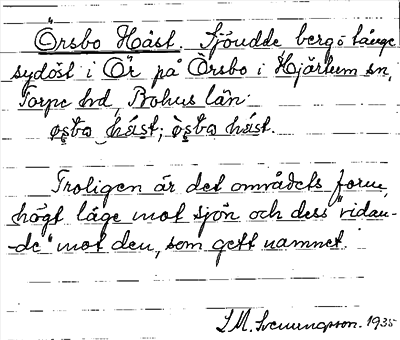 Örsbo Häst. Sjöudde bergö långe
sydöst i Ör på Örsbo i Hjärtum sn,
Torpe hd, Bohus län.
hást; hást.
Troligen är det områdets form,
högt läge mot sjön och dess "ridan-
-de" mot den, som gett namnet.
S M. Svenungsson. 1935